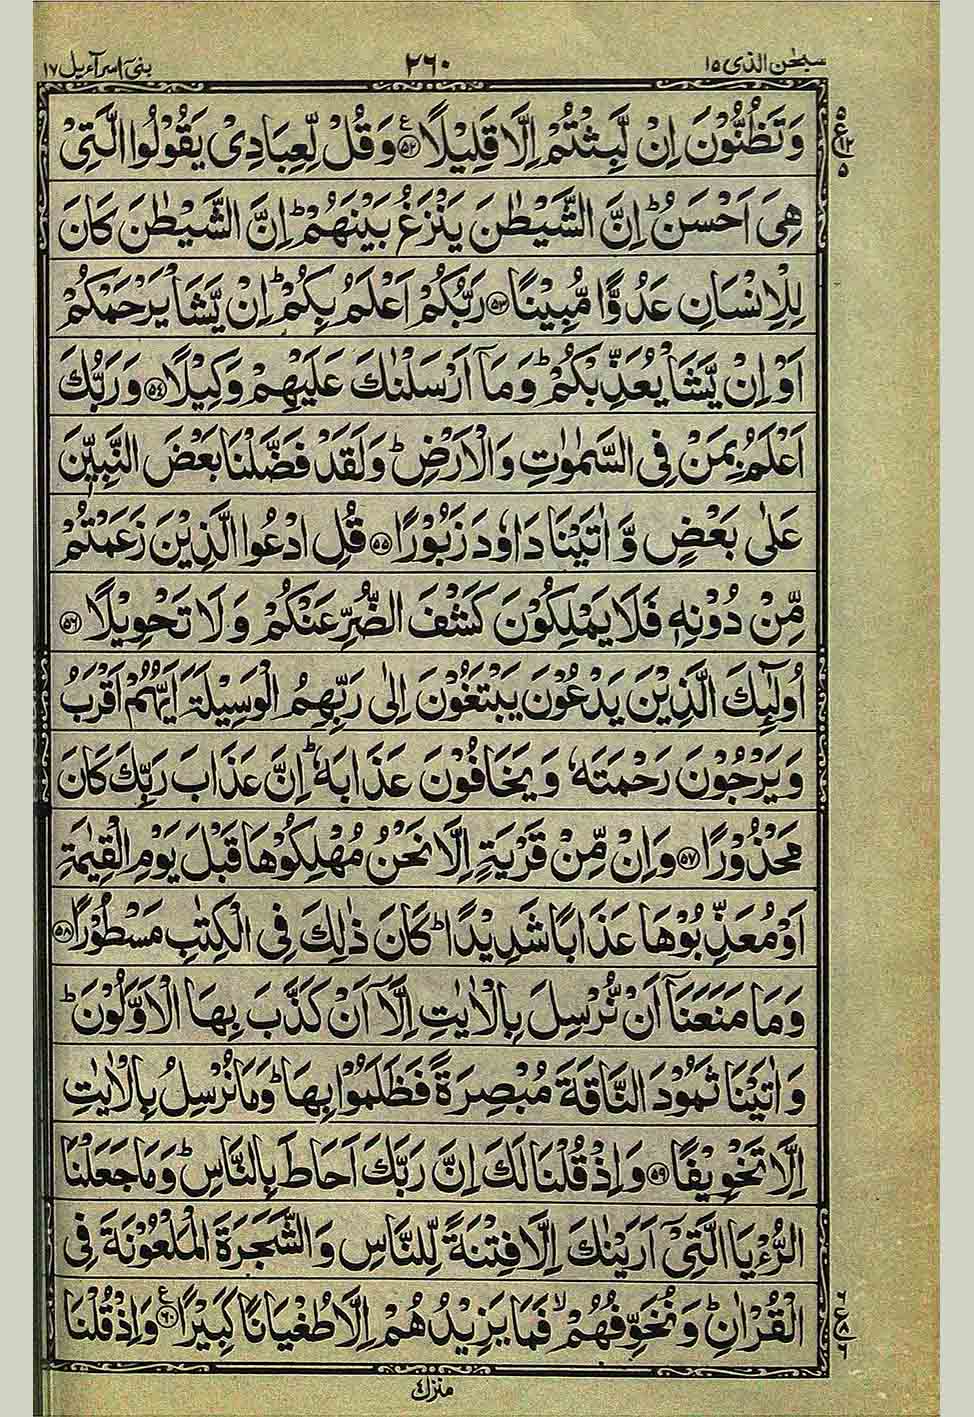 سبحٰن الذی ١٥
٢٦٠
بنیٓ اسرآءیل ١٧
وَتَظُنُّوْنَ اِنْ لَّبِثْتُمْ اِلَّا قَلِيْلًا ﴿٥٢﴾ وَقُلْ لِّعِبَادِیْ يَقُوْلُوا الَّتِیْ
هِیَ اَحْسَنُ ؕ اِنَّ الشَّيْطٰنَ يَنْزَغُ بَيْنَهُمْ ؕ اِنَّ الشَّيْطٰنَ كَانَ
لِلْاِنْسَانِ عَدُوًّا مُّبِيْنًا ﴿٥٣﴾ رَبُّكُمْ اَعْلَمُ بِكُمْ ؕ اِنْ يَّشَاْ يَرْحَمْكُمْ
اَوْ اِنْ يَّشَاْ يُعَذِّبْكُمْ ؕ وَمَاۤ اَرْسَلْنٰكَ عَلَيْهِمْ وَكِيْلًا ﴿٥٤﴾ وَرَبُّكَ
اَعْلَمُ بِمَنْ فِی السَّمٰوٰتِ وَالْاَرْضِ ؕ وَلَقَدْ فَضَّلْنَا بَعْضَ النَّبِيّٖنَ
عَلٰی بَعْضٍ وَّاٰتَيْنَا دَاوٗدَ زَبُوْرًا ﴿٥٥﴾ قُلِ ادْعُوا الَّذِيْنَ زَعَمْتُمْ
مِّنْ دُوْنِهٖ فَلَا يَمْلِكُوْنَ كَشْفَ الضُّرِّ عَنْكُمْ وَلَا تَحْوِيْلًا ﴿٥٦﴾
اُولٰٓئِكَ الَّذِيْنَ يَدْعُوْنَ يَبْتَغُوْنَ اِلٰی رَبِّهِمُ الْوَسِيْلَةَ اَيُّهُمْ اَقْرَبُ
وَيَرْجُوْنَ رَحْمَتَهٗ وَيَخَافُوْنَ عَذَابَهٗ ؕ اِنَّ عَذَابَ رَبِّكَ كَانَ
مَحْذُوْرًا ﴿٥٧﴾ وَاِنْ مِّنْ قَرْيَةٍ اِلَّا نَحْنُ مُهْلِكُوْهَا قَبْلَ يَوْمِ الْقِيٰمَةِ
اَوْ مُعَذِّبُوْهَا عَذَابًا شَدِيْدًا ؕ كَانَ ذٰلِكَ فِی الْكِتٰبِ مَسْطُوْرًا ﴿٥٨﴾
وَمَا مَنَعَنَاۤ اَنْ نُّرْسِلَ بِالْاٰيٰتِ اِلَّاۤ اَنْ كَذَّبَ بِهَا الْاَوَّلُوْنَ ؕ
وَاٰتَيْنَا ثَمُوْدَ النَّاقَةَ مُبْصِرَةً فَظَلَمُوْا بِهَا ؕ وَمَا نُرْسِلُ بِالْاٰيٰتِ
اِلَّا تَخْوِيْفًا ﴿٥٩﴾ وَاِذْ قُلْنَا لَكَ اِنَّ رَبَّكَ اَحَاطَ بِالنَّاسِ ؕ وَمَا جَعَلْنَا
الرُّءْيَا الَّتِیْۤ اَرَيْنٰكَ اِلَّا فِتْنَةً لِّلنَّاسِ وَالشَّجَرَةَ الْمَلْعُوْنَةَ فِی
الْقُرْاٰنِ ؕ وَنُخَوِّفُهُمْ ۙ فَمَا يَزِيْدُهُمْ اِلَّا طُغْيَانًا كَبِيْرًا ﴿٦٠﴾ وَاِذْ قُلْنَا
منزل ٤